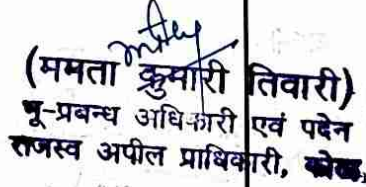 (ममता कुमारी तिवारी)
भू-प्रबन्ध अधिकारी एवं पदेन
राजस्व अपील प्राधिकारी,